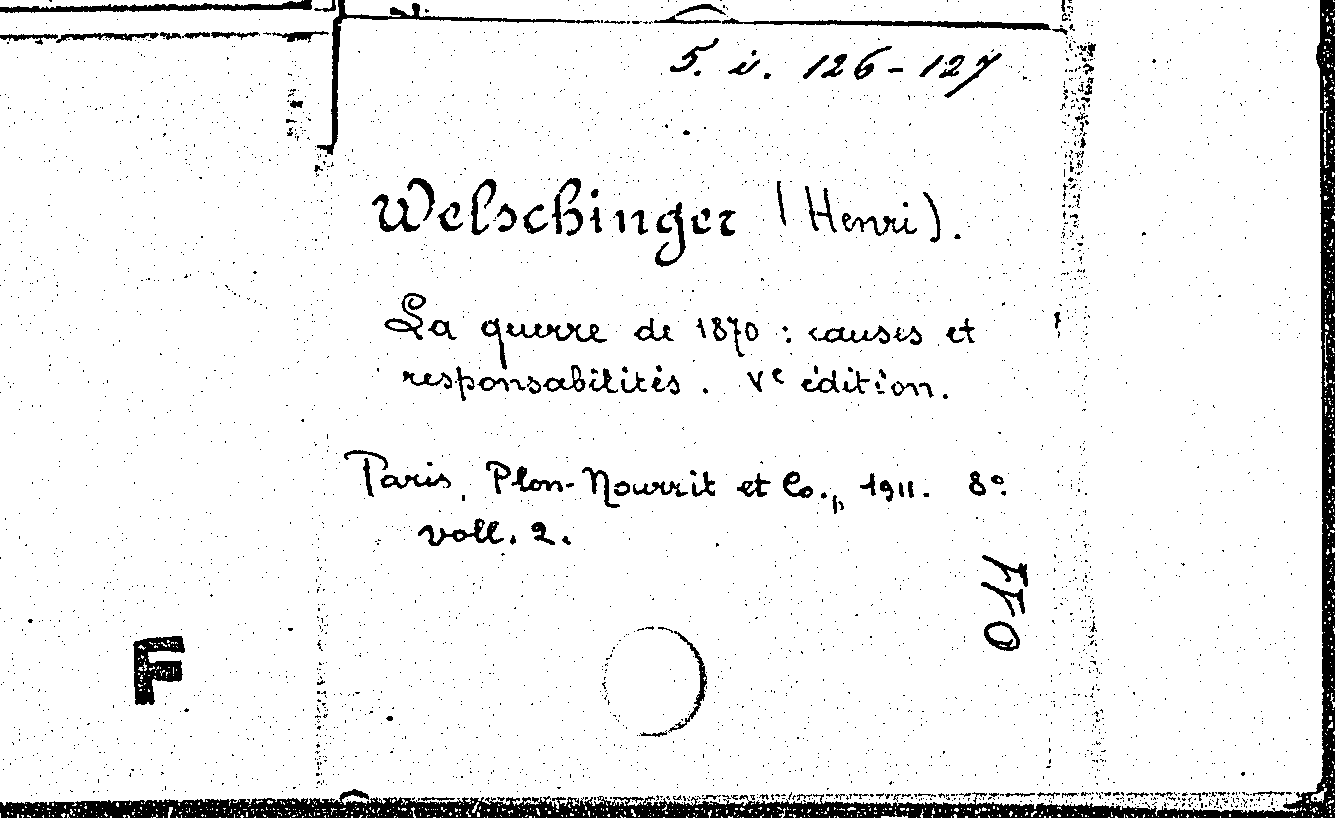 5. i. 126-127
Welschinger (Henri).
La guerre de 1870 : causes et
responsabilités. Ve édition.
Paris, Plon-Nourrit et Co., 1911. 8°.
voll. 2.
110
F